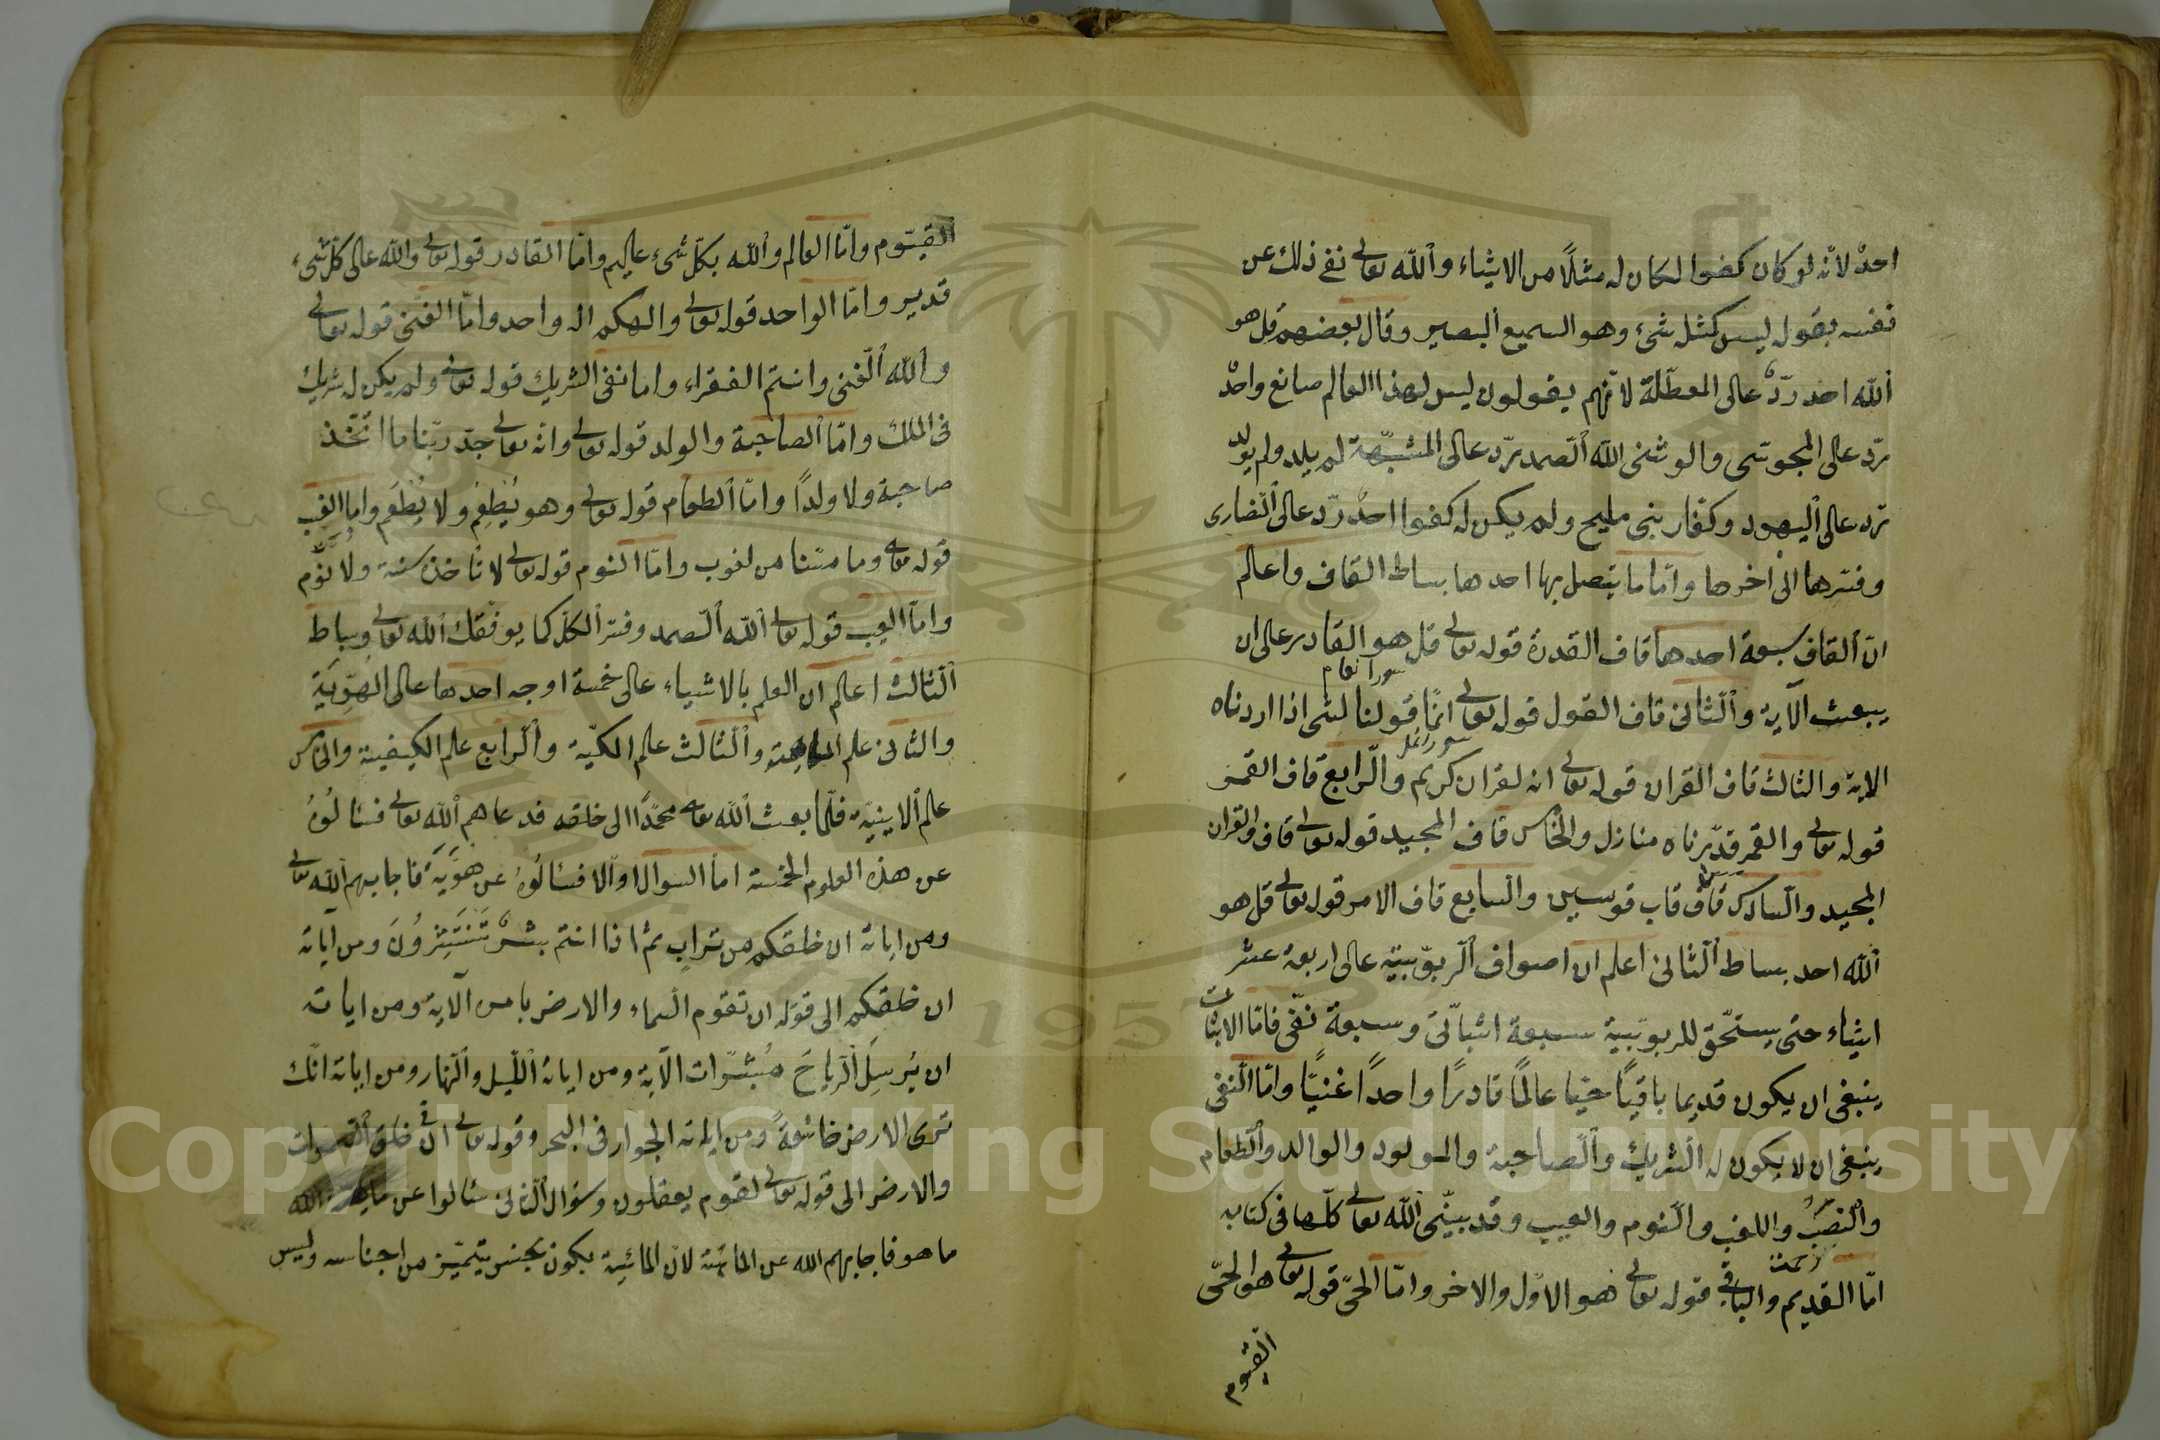 احدٌ لانّه لو كان كفوا لكان له مثلًا من الاشياء والله تعالى نفى ذلك عن
نفسه بقوله ليس كمثله شئ وهو السميع البصير وقال بعضهم قل هو
الله احد ردٌّ على المعطّلة لانّهم يقولون ليس لهذا العالم صانع واحدٌ
تردّ على المجوسى والوثنى الله الصمد تردّ على المشبّهة لم يلد ولم يولد
تردّ على اليهود وكفّار بنى مليح ولم يكن له كفوا احدٌ ردّ على النصارى
وفسّرها الى اخرها وامّا ما يتصل بها احدها بساط القاف واعلم
انّ القاف سبعة احدها قاف القدرة قوله تعالى قل هو القادر على ان
سورة انعام
يبعث الآية والثانى قاف القول قوله تعالى انّما قولنا لشئ اذا اردناه
سورة نحل
الاية والثالث قاف القران قوله تعالى انه لقران كريم والرابع قاف القمر
قوله تعالى والقمر قدّرناه منازل والخامس قاف المجيد قوله تعالى قاف والقران
المجيد والسادس قاف قاب قوسين والسابع قاف الامر قوله تعالى قل هو
الله احد بساط الثانى اعلم ان اصواف الربوبيّة على اربعة عشر
اشياء حتى يستحّق للربوبيّة سبعة اثباتى وسبعة نفى فامّا الاثبات
ينبغى ان يكون قديما باقيًا حيّا عالمًا قادرًا واحدًا غنيًا وامّا النفى
ينبغى ان لا يكون له الشريك والصاحبة والمولود والوالد والطعام
والنصبُ واللغب والنوم والعيب وقد بيّن الله تعالى كلّها فى كتابه
امّا القديم والباقى قوله تعالى هو الاوّل والاخر وامّا الحىّ قوله تعالى هو الحىّ
القيوم
القيّوم وامّا العالم والله بكلّ شئ عليم وامّا القادر قوله تعالى والله على كلّ شئ
قدير وامّا الواحد قوله تعالى والهكم اله واحد وامّا الغنى قوله تعالى
والله الغنى وانتم الفقراء واما نفى الشريك قوله تعالى ولم يكن له شريك
فى الملك وامّا الصاحبة والولد قوله تعالى وانه تعالى جدّ ربّنا ما اتّخذ
صاحبة ولا ولدًا وامّا الطعام قوله تعالى وهو يُطْعِمُ ولا يُطْعَم واما اللغب
قوله تعالى وما مسّنا من لغوب وامّا النوم قوله تعالى لا تأخذه سنة ولا نوم
وامّا العيب قوله تعالى الله الصمد وفسّر الكلّ كما يوفّقك الله تعالى وبساط
الثالث اعلم ان العلم بالاشياء على خمسة اوجه احدها على الهُوِيَّة
والثانى علم الماهيّة والثالث علم الكيّة والرابع علم الكيفية والخامس
علم الاينيّة فلمّا بعث الله تعالى محمّدًا الى خلقه فدعاهم الله تعالى فسألُوهُ
عن هذه العلوم الخمسة اما السوال اوّلا فسألُوهُ عن هوَّية فاجابهم الله تعالى
ومن اياته ان خلقكم من تراب ثم اذا انتم بشر تَنْتَشِرُونَ ومن آياته
ان خلقكم الى قوله ان تقوم السماء والارض بامره الآية ومن اياته
ان يُرسِلَ الرياحَ مُبشّرات الآية ومن اياته الليل والنهار ومن اياته انّك
ترى الارض خاشعةً ومن اياته الجوار فى البحر وقوله تعالى ان فى خلق السموات
والارض الى قوله تعالى لقوم يعقلون وسؤال الثانى سألوا عن الله
ما هو فاجابهم الله عن المائية لانّ المائية يكون بجنس يتميّز من اجناسه وليس